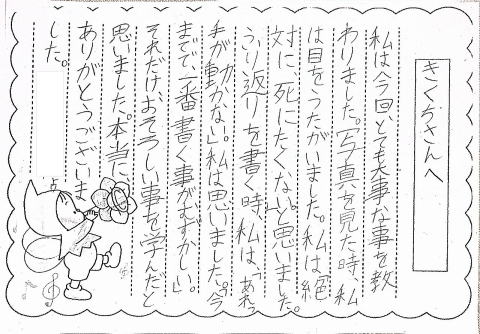 きくちさんへ
私は今回、とても大事な事を教
わりました。写真を見た時、私
は目をうたがいました。私は「絶
対に、死にたくない」と思いました。
ふり返りを書く時、私は、「あれっ
手が動かない」。私は思いました。「今
までで、一番書く事がむずかしい」。
それだけ、おそろしい事を学んだと
思いました。本当に、
ありがとうございま
した。